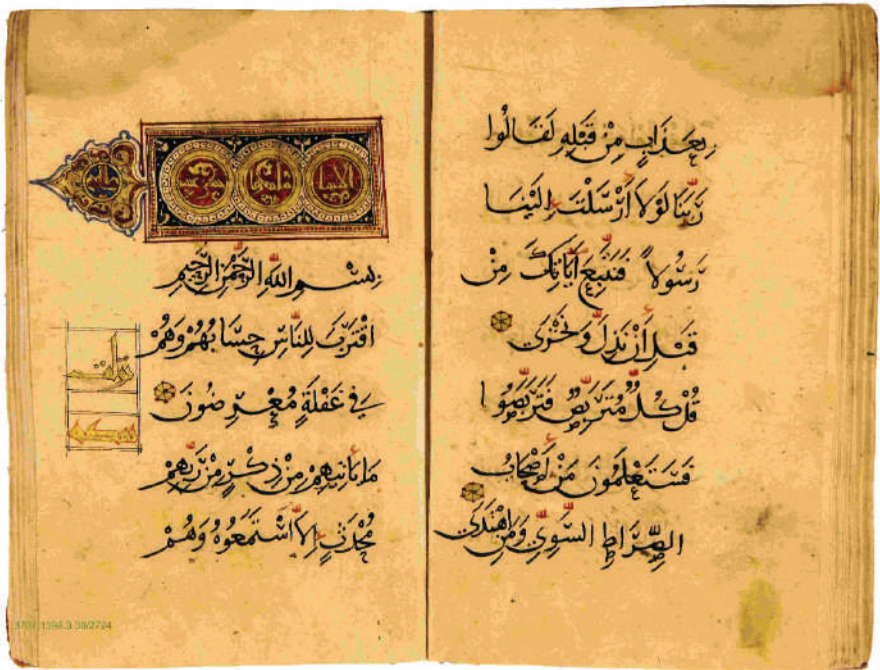 بِعَذَابٍ مِنْ قَبْلِهِ لَقَالُوا
رَبَّنَا لَوْلَا أَرْسَلْتَ إِلَيْنَا
رَسُولًا فَنَتَّبِعَ آيَاتِكَ مِنْ
قَبْلِ أَنْ نَذِلَّ وَنَخْزَى
قُلْ كُلٌّ مُتَرَبِّصٌ فَتَرَبَّصُوا
فَسَتَعْلَمُونَ مَنْ أَصْحَابُ
الصِّرَاطِ السَّوِيِّ وَمَنِ اهْتَدَى
بِسْمِ اللَّهِ الرَّحْمَٰنِ الرَّحِيمِ
اقْتَرَبَ لِلنَّاسِ حِسَابُهُمْ وَهُمْ
فِي غَفْلَةٍ مُعْرِضُونَ
مَا يَأْتِيهِمْ مِنْ ذِكْرٍ مِنْ رَبِّهِمْ
مُحْدَثٍ إِلَّا اسْتَمَعُوهُ وَهُمْ
3707 1398.9.30/2724